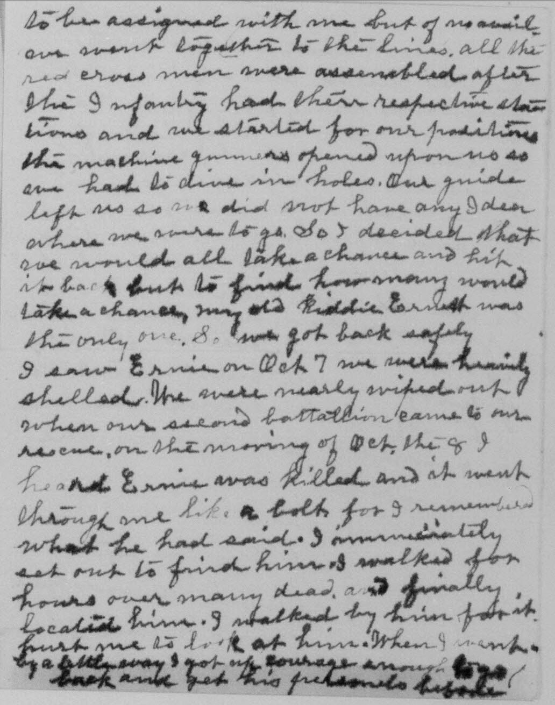 to be assigned with me but of no avail-
we went together to the lines. all the
red cross men were assembled after
the Infantry had therr respective sta
tions and we started for our positions
the machine gunners opened upon us so
we had to dive in holes. Our guide
left us so we did not have any Idea
where we were to go. So I decided that
we would all take a chance and hit
it back but to find how many would
take a chance, my old Kiddie Ernest was
the only one. So we got back safely
I saw Ernie on Oct 7 we were heavily
shelled. We were nearly wiped out
when our second battallion came to our
rescue, on the morning of Oct. the 8 I
heard Ernie was killed and it went
through me like a bolt for I remembered
what he had said. I immediately
set out to find him. I walked for
hours over many dead. and finally
located him. I walked by him for it
hurt me to look at him. When I went
by a little way I got up courage enough to go
back and get his personels before